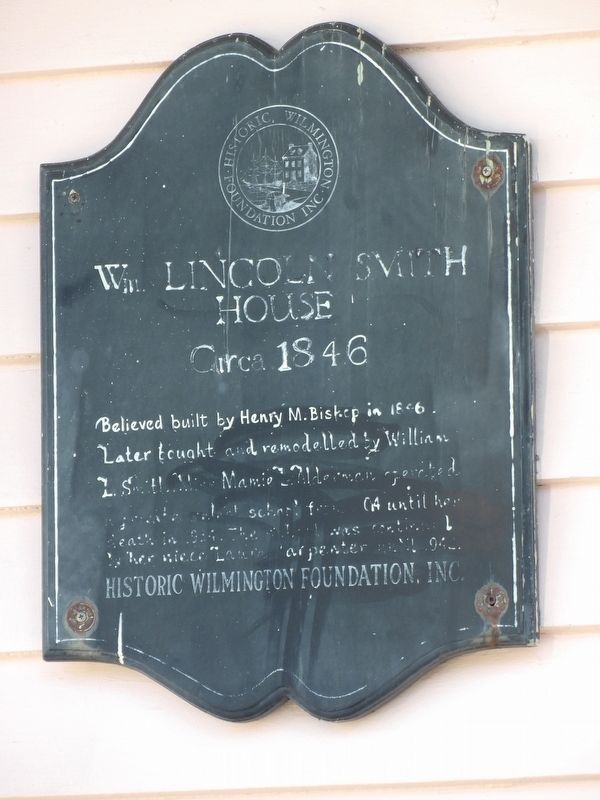 HISTORIC WILMINGTON
FOUNDATION INC
Wm. LINCOLN SMITH
HOUSE
Circa 1846
Believed built by Henry M. Bishop in
Later bought and remodelled by William
L. Smith. Miss Mamie Alderman operated
school from until her
death in The was continued
by her niece Laura Carpenter until
HISTORIC WILMINGTON FOUNDATION, INC.